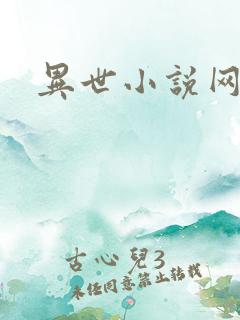 異世小說网
古心兒3
未经同意禁止转载